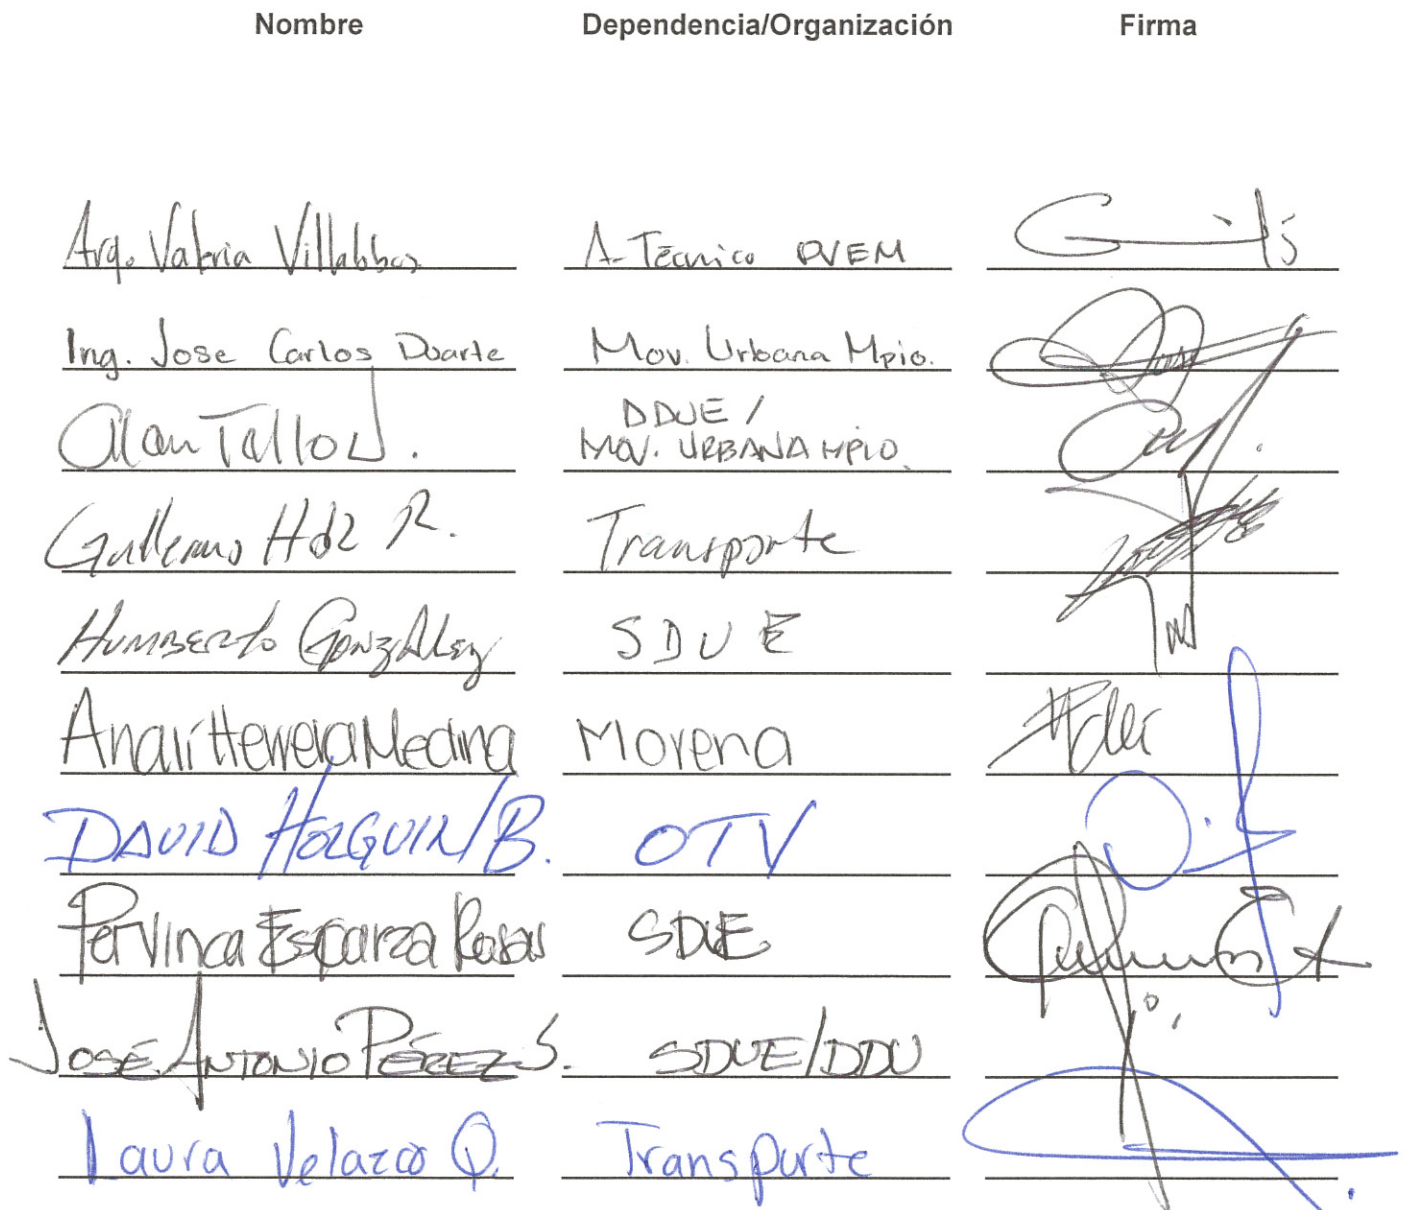 Nombre Dependencia/Organización Firma
Arq. Valeria Villalobos A-Técnico PVEM
Ing. Jose Carlos Duarte Mov. Urbana Mpio.
Alan Tello J. DDUE / MOV. URBANA MPIO.
Guillermo Hdz R. Transporte
HUMBERTO GONZÁLEZ SDUE
Analí Herrera Medina Morena
DAVID HOLGUIN B. OTV
Pervinca Esparza Rosas SDUE
JOSÉ ANTONIO PÉREZ S. SDUE/DDU
Laura Velazco Q. Transporte